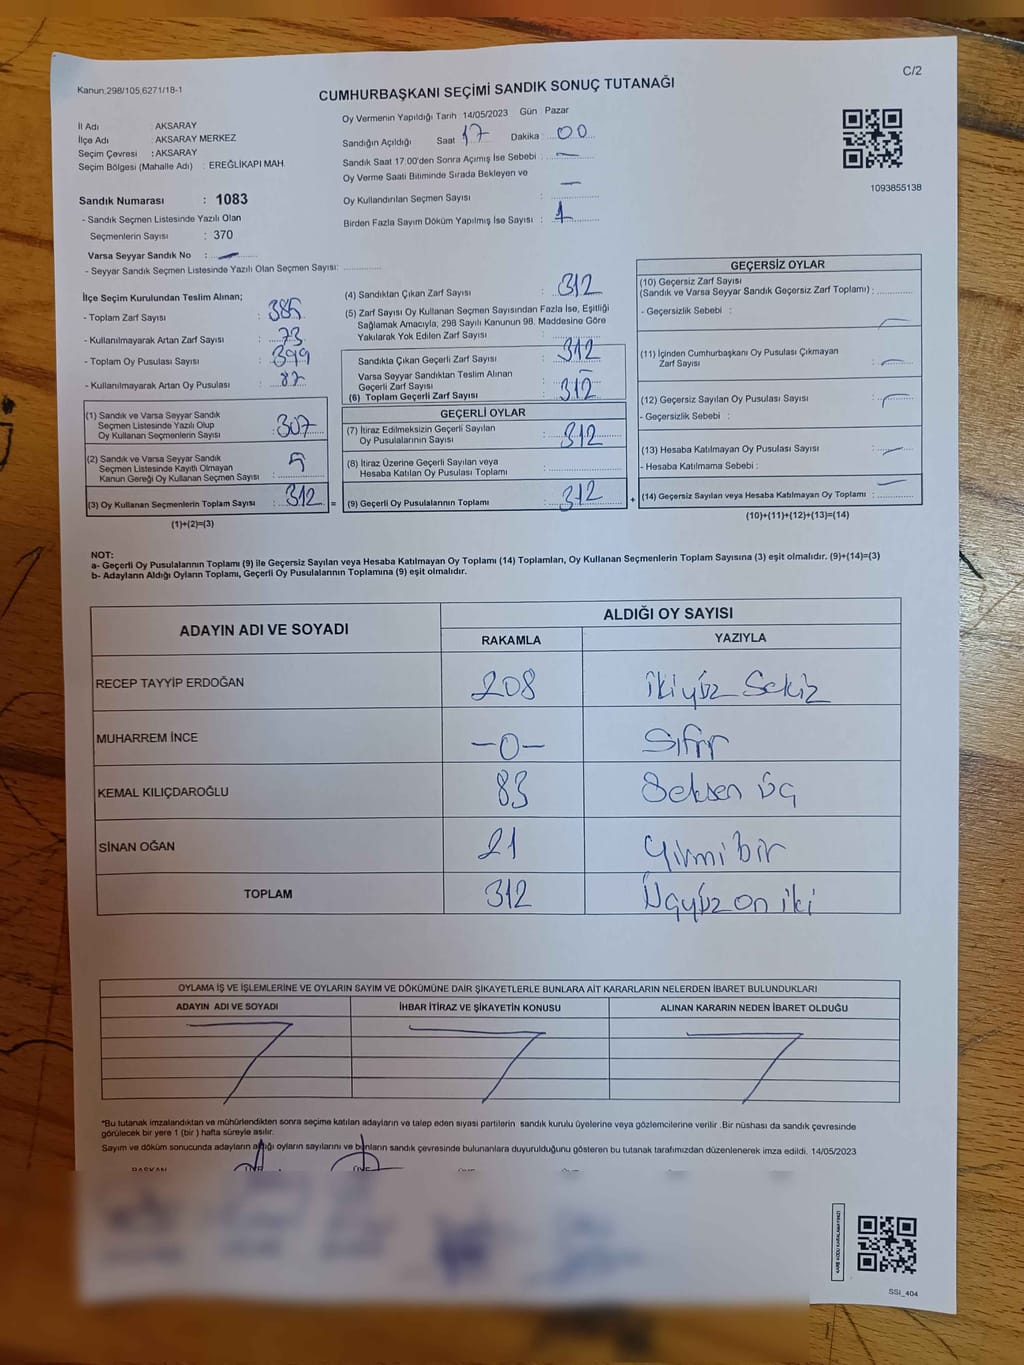 C/2
Kanun,298/105,6271/18-1
CUMHURBAŞKANI SEÇİMİ SANDIK SONUÇ TUTANAĞI
İl Adı : AKSARAY
İlçe Adı : AKSARAY MERKEZ
Seçim Çevresi : AKSARAY
Seçim Bölgesi (Mahalle Adı) : EREĞLİKAPI MAH.
Sandık Numarası : 1083
- Sandık Seçmen Listesinde Yazılı Olan
Seçmenlerin Sayısı : 370
Varsa Seyyar Sandık No :
- Seyyar Sandık Seçmen Listesinde Yazılı Olan Seçmen Sayısı:
Oy Vermenin Yapıldığı Tarih 14/05/2023 Gün Pazar
Sandığın Açıldığı Saat 17 Dakika : 00
Sandık Saat 17.00'den Sonra Açımış İse Sebebi : —
Oy Verme Saati Bitiminde Sırada Bekleyen ve
Oy Kullandırılan Seçmen Sayısı : —
Birden Fazla Sayım Döküm Yapılmış İse Sayısı : 1
1093855138
İlçe Seçim Kurulundan Teslim Alınan;
- Toplam Zarf Sayısı : 385
- Kullanılmayarak Artan Zarf Sayısı : 73
- Toplam Oy Pusulası Sayısı : 399
- Kullanılmayarak Artan Oy Pusulası : 87
(1) Sandık ve Varsa Seyyar Sandık
Seçmen Listesinde Yazılı Olup
Oy Kullanan Seçmenlerin Sayısı : 307
(2) Sandık ve Varsa Seyyar Sandık
Seçmen Listesinde Kayıtlı Olmayan
Kanun Gereği Oy Kullanan Seçmen Sayısı : 5
(3) Oy Kullanan Seçmenlerin Toplam Sayısı : 312 =
(1)+(2)=(3)
(4) Sandıktan Çıkan Zarf Sayısı : 312
(5) Zarf Sayısı Oy Kullanan Seçmen Sayısından Fazla İse, Eşitliği
Sağlamak Amacıyla, 298 Sayılı Kanunun 98. Maddesine Göre
Yakılarak Yok Edilen Zarf Sayısı :
Sandıkta Çıkan Geçerli Zarf Sayısı : 312
Varsa Seyyar Sandıktan Teslim Alınan
Geçerli Zarf Sayısı : —
(6) Toplam Geçerli Zarf Sayısı : 312
GEÇERLİ OYLAR
(7) İtiraz Edilmeksizin Geçerli Sayılan
Oy Pusulalarının Sayısı : 312
(8) İtiraz Üzerine Geçerli Sayılan veya
Hesaba Katılan Oy Pusulası Toplamı :
(9) Geçerli Oy Pusulalarının Toplamı : 312 +
GEÇERSİZ OYLAR
(10) Geçersiz Zarf Sayısı
(Sandık ve Varsa Seyyar Sandık Geçersiz Zarf Toplamı) :
- Geçersizlik Sebebi :
(11) İçinden Cumhurbaşkanı Oy Pusulası Çıkmayan
Zarf Sayısı : —
(12) Geçersiz Sayılan Oy Pusulası Sayısı : —
- Geçersizlik Sebebi :
(13) Hesaba Katılmayan Oy Pusulası Sayısı : —
- Hesaba Katılmama Sebebi :
(14) Geçersiz Sayılan veya Hesaba Katılmayan Oy Toplamı : —
(10)+(11)+(12)+(13)=(14)
NOT:
a- Geçerli Oy Pusulalarının Toplamı (9) ile Geçersiz Sayılan veya Hesaba Katılmayan Oy Toplamı (14) Toplamları, Oy Kullanan Seçmenlerin Toplam Sayısına (3) eşit olmalıdır. (9)+(14)=(3)
b- Adayların Aldığı Oyların Toplamı, Geçerli Oy Pusulalarının Toplamına (9) eşit olmalıdır.
ADAYIN ADI VE SOYADI
ALDIĞI OY SAYISI
RAKAMLA YAZIYLA
RECEP TAYYİP ERDOĞAN 208 ikiyüz Sekiz
MUHARREM İNCE —0— Sıfır
KEMAL KILIÇDAROĞLU 83 Seksen Üç
SİNAN OĞAN 21 Yirmi bir
TOPLAM 312 Üçyüz on iki
OYLAMA İŞ VE İŞLEMLERİNE VE OYLARIN SAYIM VE DÖKÜMÜNE DAİR ŞİKAYETLERLE BUNLARA AİT KARARLARIN NELERDEN İBARET BULUNDUKLARI
ADAYIN ADI VE SOYADI İHBAR İTİRAZ VE ŞİKAYETİN KONUSU ALINAN KARARIN NEDEN İBARET OLDUĞU
*Bu tutanak imzalandıktan ve mühürlendikten sonra seçime katılan adayların ve talep eden siyasi partilerin sandık kurulu üyelerine veya gözlemcilerine verilir .Bir nüshası da sandık çevresinde
görülecek bir yere 1 (bir ) hafta süreyle asılır.
Sayım ve döküm sonucunda adayların aldığı oyların sayılarını ve bunların sandık çevresinde bulunanlara duyurulduğunu gösteren bu tutanak tarafımızdan düzenlenerek imza edildi. 14/05/2023
BAŞKAN
SSI_404